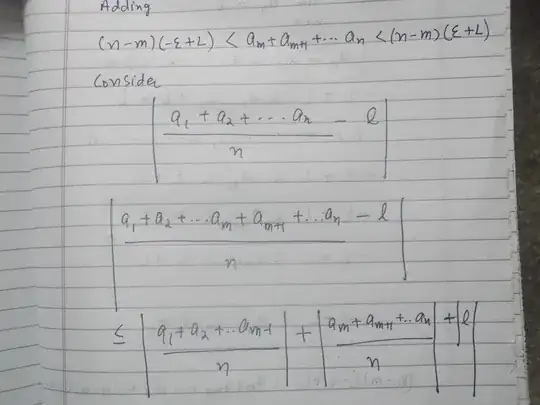 Adding
(n-m)(-ε+L) < am + am+1 + ... an < (n-m)(ε+L)
Consider
| a1 + a2 + ... an / n - l |
| a1 + a2 + ... am + am+1 + ... an / n - l |
≤ | a1 + a2 + .. am-1 / n | + | am + am+1 + .. an / n | + | l |